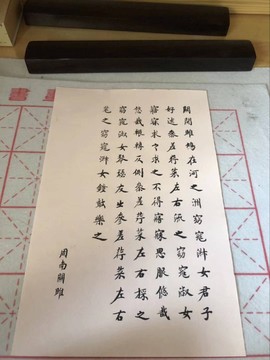 關關雎鳩在河之洲窈窕淑女君子
好逑參差荇菜左右流之窈窕淑女
寤寐求之求之不得寤寐思服悠哉
悠哉輾轉反側參差荇菜左右採之
窈窕淑女琴瑟友之參差荇菜左右
芼之窈窕淑女鐘鼓樂之
周南關雎